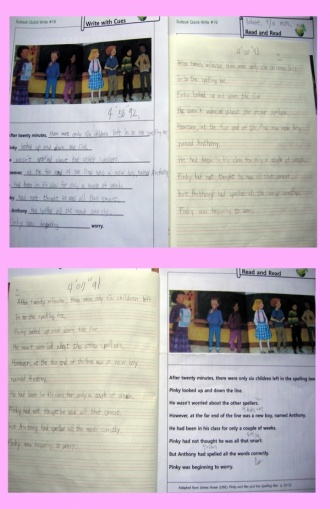 Subtext Quick Write #19
Write with Cues
4'58 92
After twenty minutes, there were only six children left in to the spelling be
Pinky looked up and down the line.
He wasn't worried about the other spellers.
However, at the far end of the line was a new boy, named Anthony.
had been in his class for only a couple of weeks.
Pinky had not thought he was all that smart.
Anthony had spelled all the words correctly.
Pinky was beginning to worry.
Read and Read
4'00 92
After twenty minutes, there were only six children left
In to the spelling be.
Pinky looked up and down the line.
He wasn't worried about the other spellers.
However, at the far end of the line was new boy,
named Anthony.
He had been in his class for only a couple of weeks.
Pinky had not thought he was all that smart.
But Anthony had spelled all the words correctly.
Pinky was beginning to worry.
4'07" 91
After twenty minutes, there were only six children left
In to the spelling be.
Pinky looked up and down the line.
He wasn't worried about the other spellers.
However, at the far end of the line was a new boy,
named Anthony.
He had been in his class for only a couple of weeks.
Pinky had not thought he was all that smart.
But Anthony had spelled all the words correctly.
Pinky was beginning to worry.
Read and Read
After twenty minutes, there were only six children left in the spelling bee
Pinky looked up and down the line.
He wasn't worried about the other spellers.
However, at the far end of the line was a new boy, named Anthony.
He had been in his class for only a couple of weeks.
Pinky had not thought he was all that smart.
But Anthony had spelled all the words correctly.
Pinky was beginning to worry.